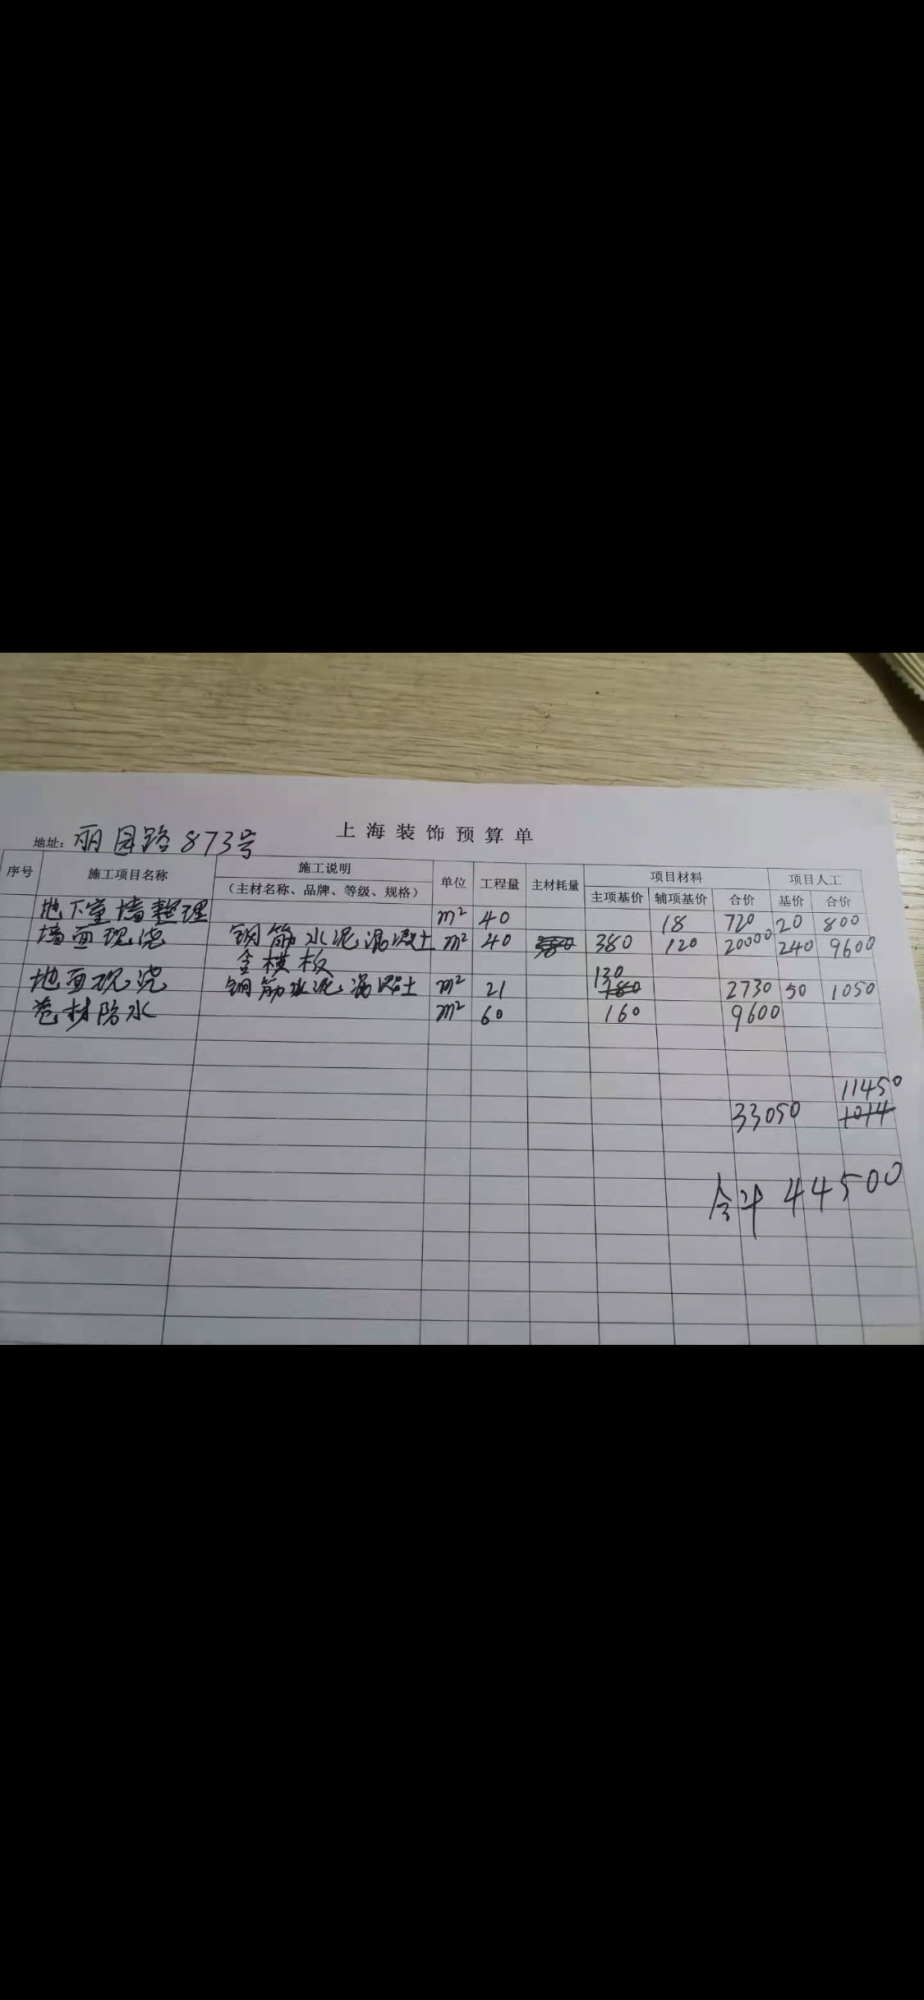 上海装饰预算单
地址: 丽园路873号
序号 施工项目名称 施工说明 (主材名称、品牌、等级、规格) 单位 工程量 主材耗量 项目材料 项目人工
主项基价 辅项基价 合价 基价 合价
地下室墙整理 m² 40 18 720 20 800
墙面现浇 钢筋水泥混凝土 m² 40 380 120 20000 240 9600
含模板
地面现浇 钢筋水泥混凝土 m² 21 130 2730 50 1050
卷材防水 m² 60 160 9600
11450
33050
合计 44500